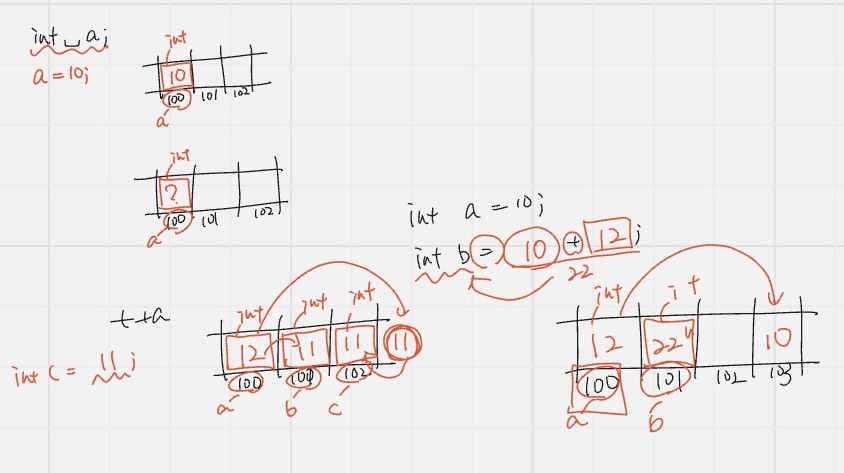 int a;
a = 10;
int
10
100 101 102
a
int
?
100 101 102
a
int a = 10;
int b = 10 + 12;
22
++a
int c = 11;
int int int
12 11 11 11
100 102
a b c
int
12 22 10
100 101 102 103
a b